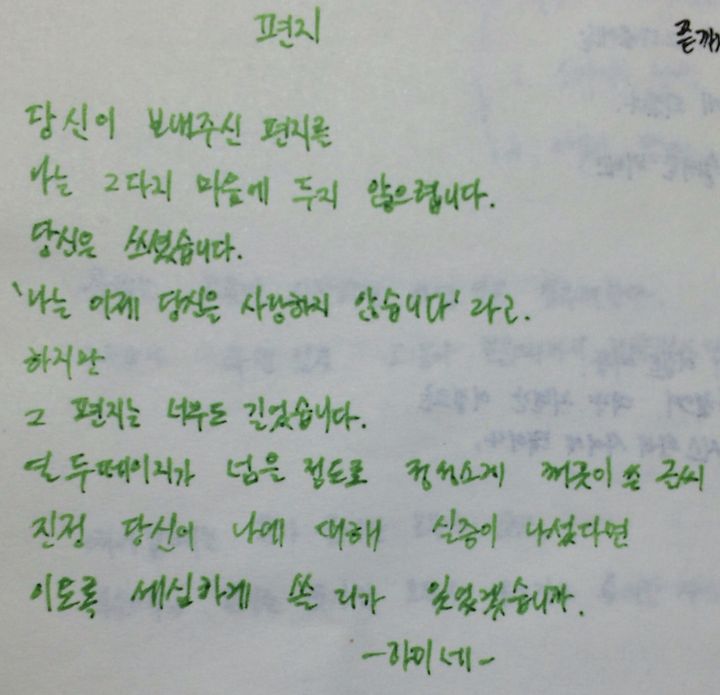 편지
당신이 보내주신 편지를
나는 그다지 마음에 두지 않으렵니다.
당신은 쓰셨습니다.
'나는 이제 당신을 사랑하지 않습니다' 라고.
하지만
그 편지는 너무도 길었습니다.
열 두페이지가 넘은 정도로 정성스레 깨끗이 쓴 글씨
진정 당신이 나에 대해 실증이 나셨다면
이토록 세심하게 쓸 리가 있었겠습니까.
-하이네-